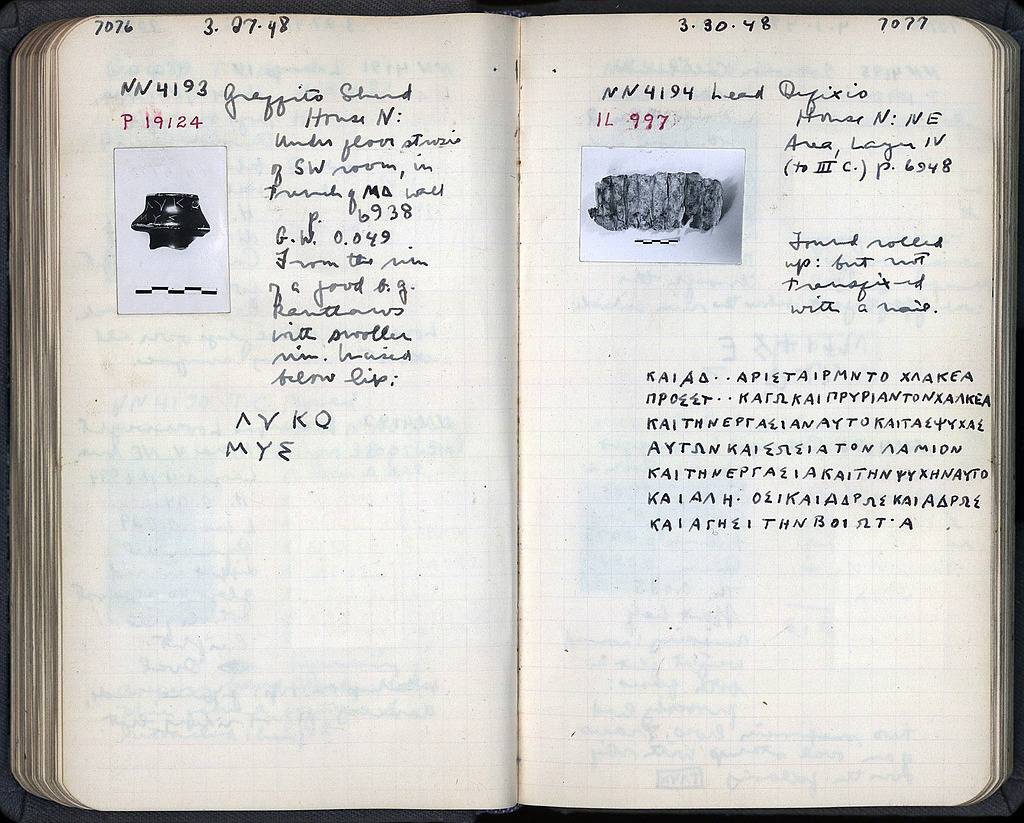 7076 3. 27. 48
NN 4193 Graffito Sherd
P 19124 House N:
Under floor strosis
of SW room, in
trench of MΔ wall
p. 6938
G.W. 0.049
From the rim
of a good b.g.
Kantharos
with swollen
rim. Incised
below lip:
ΛΥΚΟ
ΜΥΣ
3. 30. 48 7077
NN 4194 Lead Defixio
IL 997 House N: NE
Area, Layer IV
(to III C.) p. 6948
Found rolled
up: but not
transfixed
with a nail.
ΚΑΙΑΔ·· ΑΡΙΣΤΑΙΡΜΝΤΟ ΧΛΑΚΕΑ
ΠΡΟΣΣΤ·· ΚΑΓΩΚΑΙΠΡΥΡΙΑΝΤΟΝΧΑΛΚΕΑ
ΚΑΙΤΗΝΕΡΓΑΣΙΑΝΑΥΤΟΚΑΙΤΑΣΨΥΧΑΣ
ΑΥΤΩΝΚΑΙΣΩΣΙΑΤΟΝΛΑΜΙΟΝ
ΚΑΙΤΗΝΕΡΓΑΣΙΑΚΑΙΤΗΝΨΥΧΗΝΑΥΤΟ
ΚΑΙΑΛΗ· ΟΣΙΚΑΙΑΔΡΩΣΚΑΙΑΔΡΩΣ
ΚΑΙΑΓΗΣΙ ΤΗΝΒΟΙΩΤ·Α